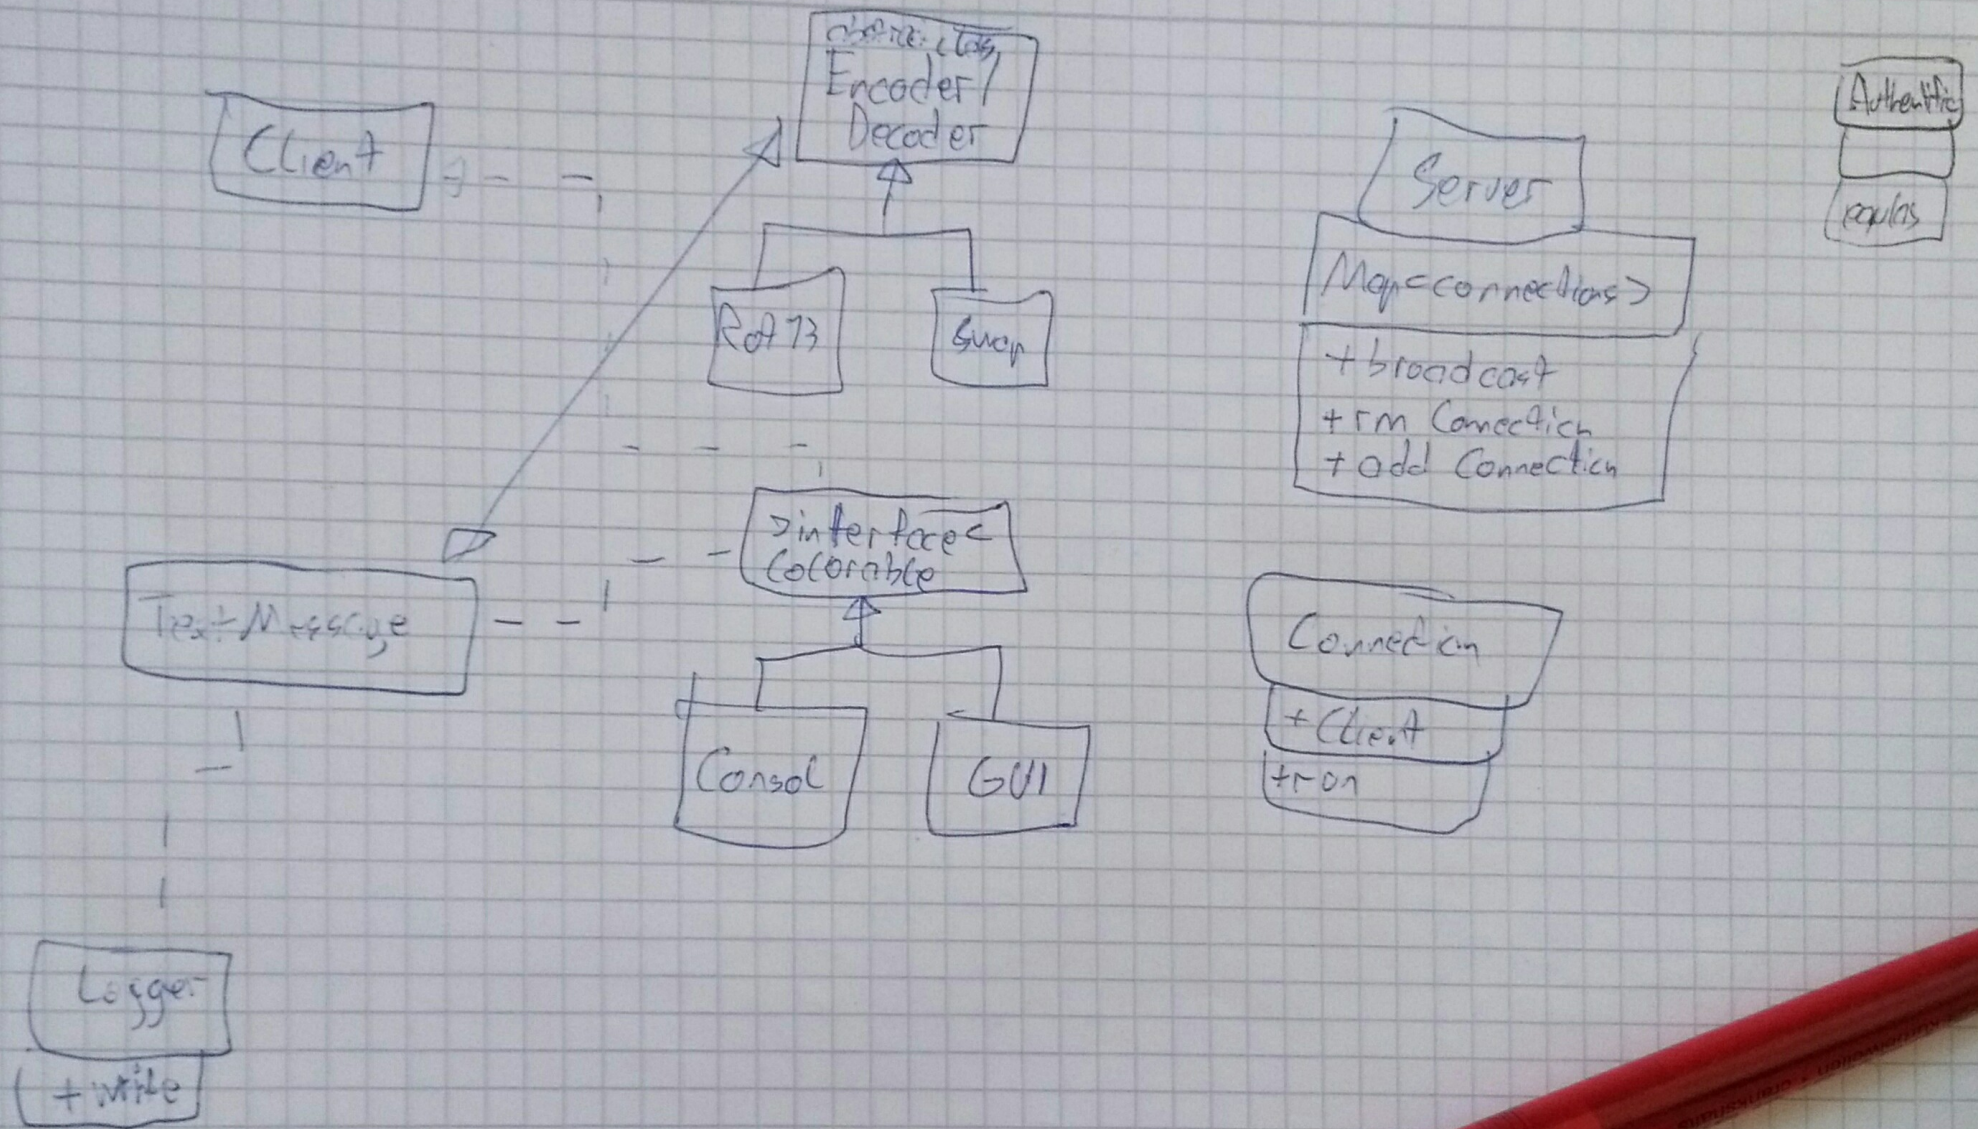 Client
Encoder/
Decoder
Rot13
Swap
Server
Map<connections>
+broadcast
+rm Connection
+add Connection
>interface<
Colorable
Text Message
Consol
GUI
Connection
+Client
+run
Logger
+write